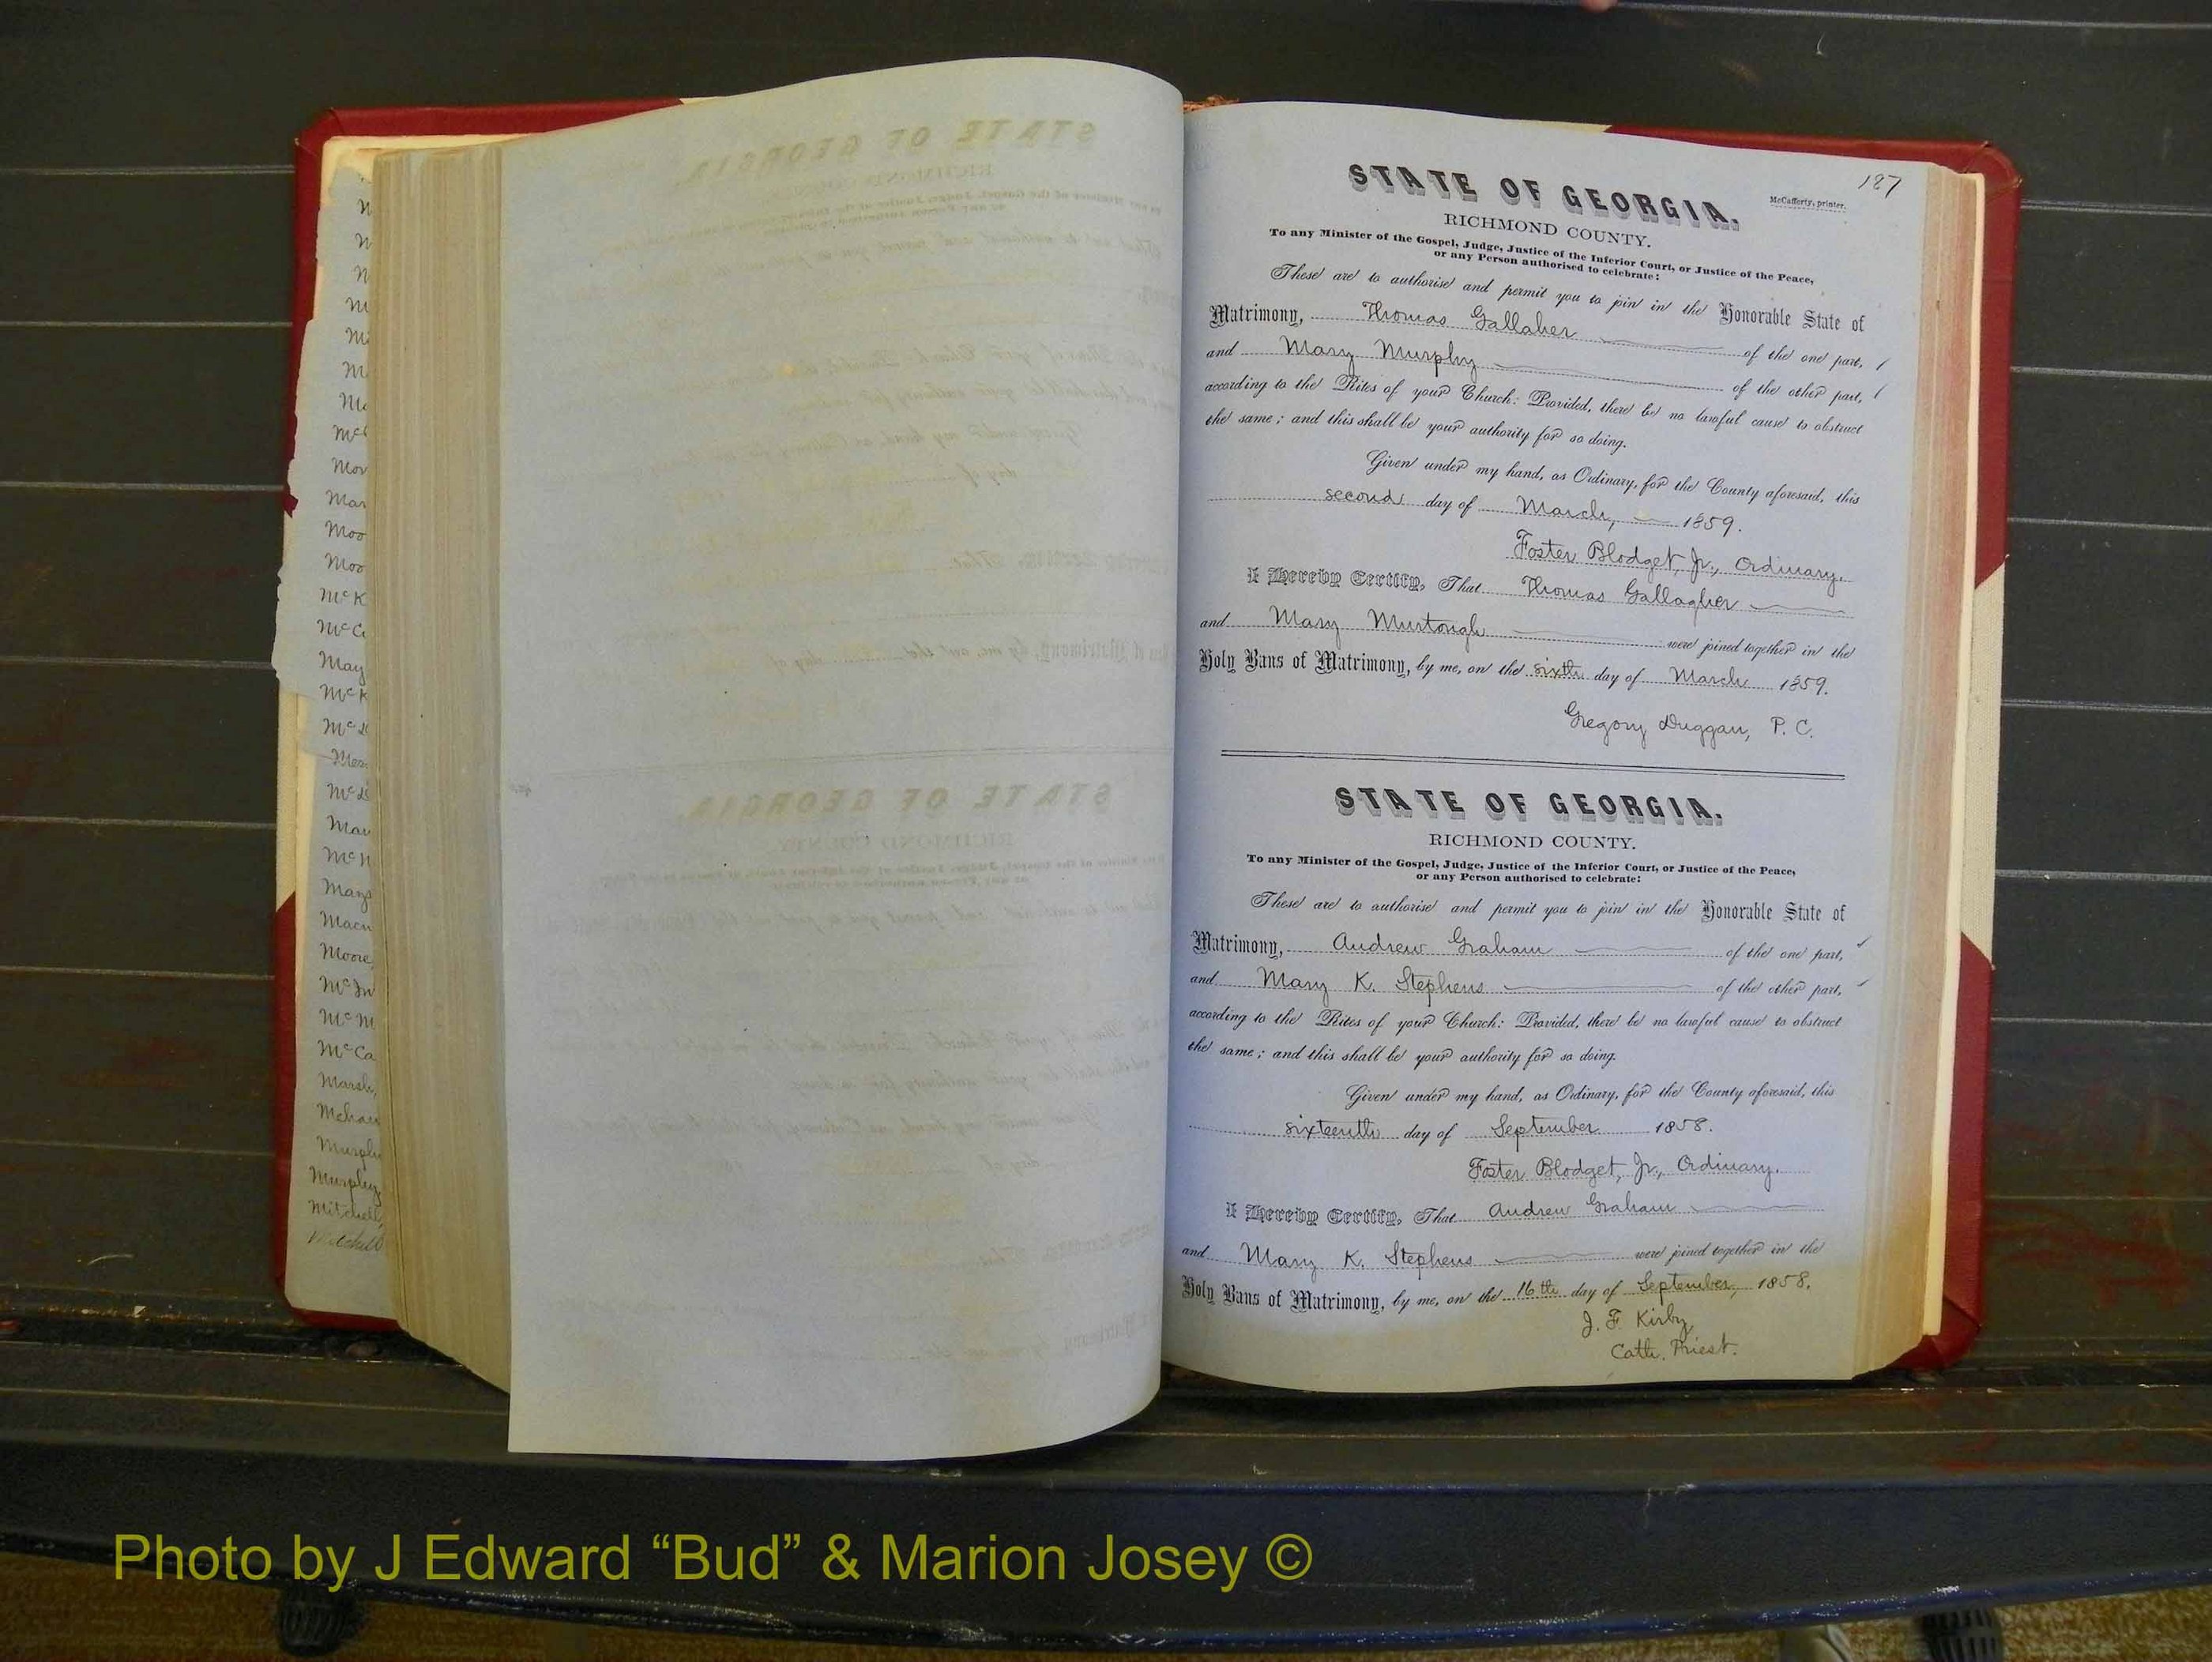 M
M
M
M
Mi
M
Mc
Mc
Mor
Mar
Moo
Moo
McK
McC
May
McK
Mc
McN
Mays
Macn
Moore,
McIn
McM
McCa
Marsh,
Murphy
Murphy
Mitchell,
Mitchell
187
STATE OF GEORGIA.
McCafferty, printer.
RICHMOND COUNTY.
To any Minister of the Gospel, Judge, Justice of the Inferior Court, or Justice of the Peace,
or any Person authorised to celebrate:
These are to authorise and permit you to join in the Honorable State of
Matrimony, Thomas Gallaher of the one part,
and Mary Murphy of the other part,
according to the Rites of your Church: Provided, there be no lawful cause to obstruct
the same; and this shall be your authority for so doing.
Given under my hand, as Ordinary, for the County aforesaid, this
second day of March, 1859.
Foster Blodget, Jr., Ordinary.
I Hereby Certify, That Thomas Gallagher
and Mary Murtough were joined together in the
Holy Bans of Matrimony, by me, on the sixth day of March 1859.
Gregory Duggan, P. C.
STATE OF GEORGIA.
RICHMOND COUNTY.
To any Minister of the Gospel, Judge, Justice of the Inferior Court, or Justice of the Peace,
or any Person authorised to celebrate:
These are to authorise and permit you to join in the Honorable State of
Matrimony, Andrew Graham of the one part,
and Mary K. Stephens of the other part,
according to the Rites of your Church: Provided, there be no lawful cause to obstruct
the same; and this shall be your authority for so doing.
Given under my hand, as Ordinary, for the County aforesaid, this
sixteenth day of September 1858.
Foster Blodget, Jr., Ordinary.
I Hereby Certify, That Andrew Graham
and Mary K. Stephens were joined together in the
Holy Bans of Matrimony, by me, on the 16th day of September, 1858.
J. F. Kirby
Cath. Priest.
Photo by J Edward “Bud” & Marion Josey ©